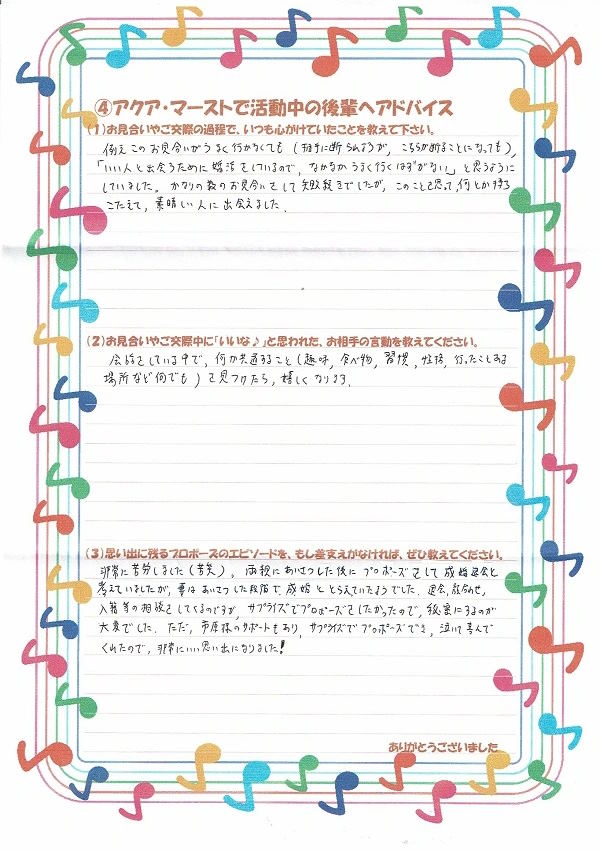 ④アクア・マーストで活動中の後輩へアドバイス
(1)お見合いやご交際の過程で、いつも心がけていたことを教えて下さい。
例えこのお見合いがうまく行かなくても(相手に断られようが、こちらが断ることになっても)、
「いい人と出会うために婚活をしているので、なかなかうまく行くはずがない」と思うように
していました。かなりの数のお見合いをして失敗続きでしたが、このことを思って何とか
こたえて、素晴しい人に出会えました。
(2)お見合いやご交際中に「いいな♪」と思われた、お相手の言動を教えてください。
会話をしている中で、何か共通すること(趣味、食べ物、習慣、性格、行ったことある
場所など何でも)を見つけたら、嬉しくなります。
(3)思い出に残るプロポーズのエピソードを、もし差支えがなければ、ぜひ教えてください。
非常に苦労しました(苦笑)。両親にあいさつした後にプロポーズをして成婚退会と
考えていましたが、妻はあいさつした段階で成婚ととらえていたようでした。退会、顔合わせ、
入籍等の相談をしてくるのですが、サプライズでプロポーズをしたかったので、秘密にするのが
大変でした。ただ、市原様のサポートもあり、サプライズでプロポーズでき、泣いて喜んで
くれたので、非常にいい思い出になりました!
ありがとうございました